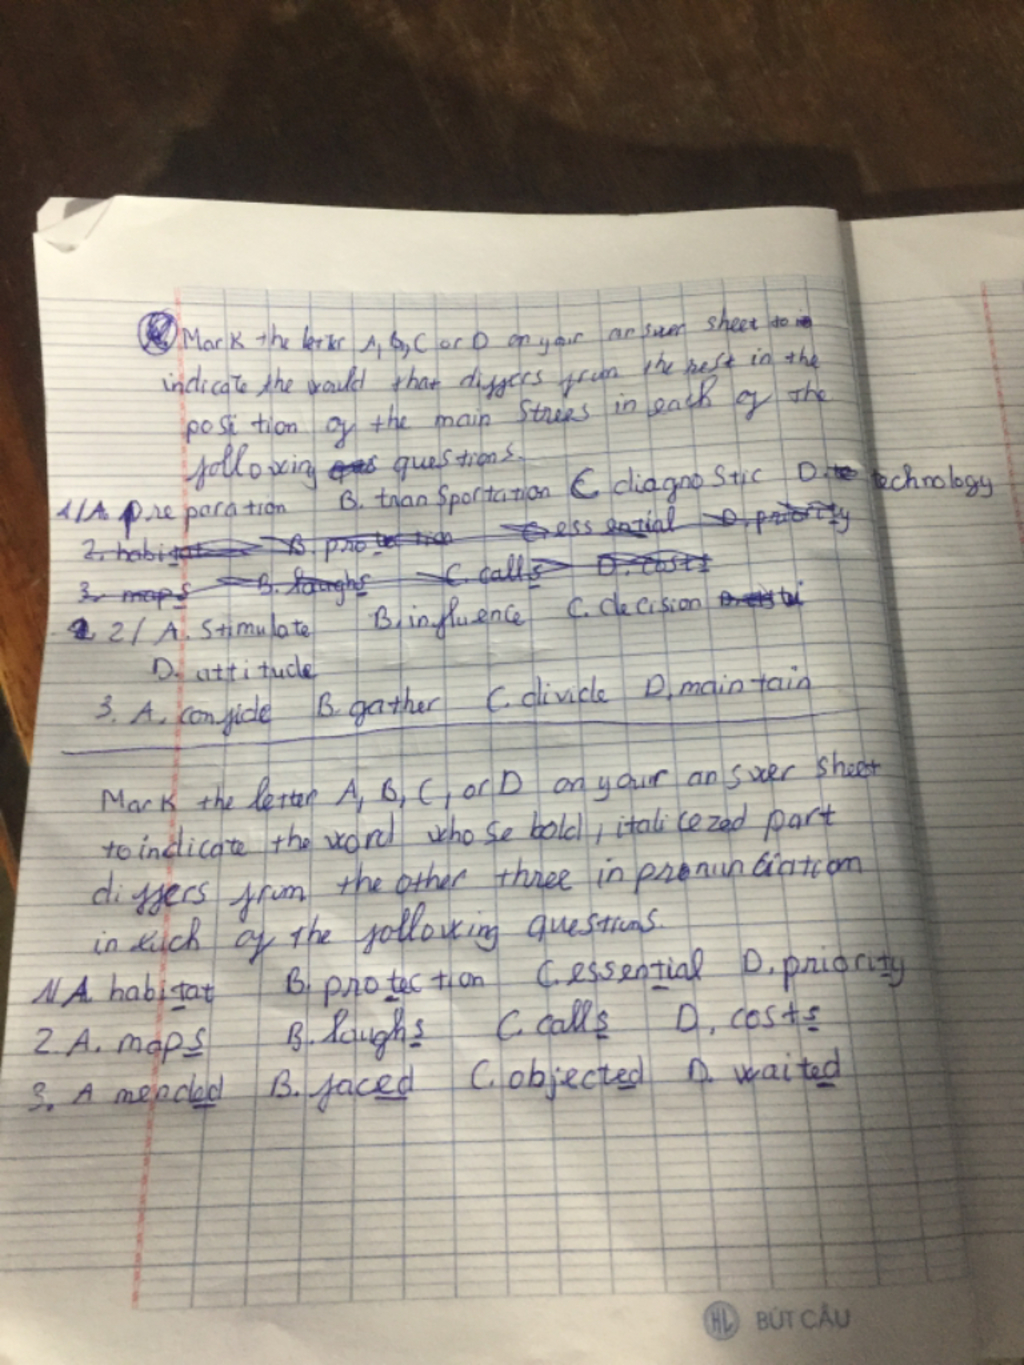 Mark the letter A, B, C or D on your answer sheet to
indicate the would that differs from the rest in the
position of the main Strees in each of the
following questions.
1/A. preparation B. transportation C diagnostic D. technology
2. habitat B. protection C. essential D. priority
3. maps B. laughs C. calls D. costs
2/ A. Stimulate B. influence C. decision
D. attitude
3. A. confide B. gather C. divide D. maintain
Mark the letter A, B, C, or D on your answer sheet
to indicate the word whose bold, italicezed part
differs from the other three in pronunciation
in each of the following questions.
1/ A. habitat B. protection C. essential D. priority
2. A. maps B. laughs C. calls D. costs
3. A mended B. faced C. objected D. waited
HL BÚT CÂU